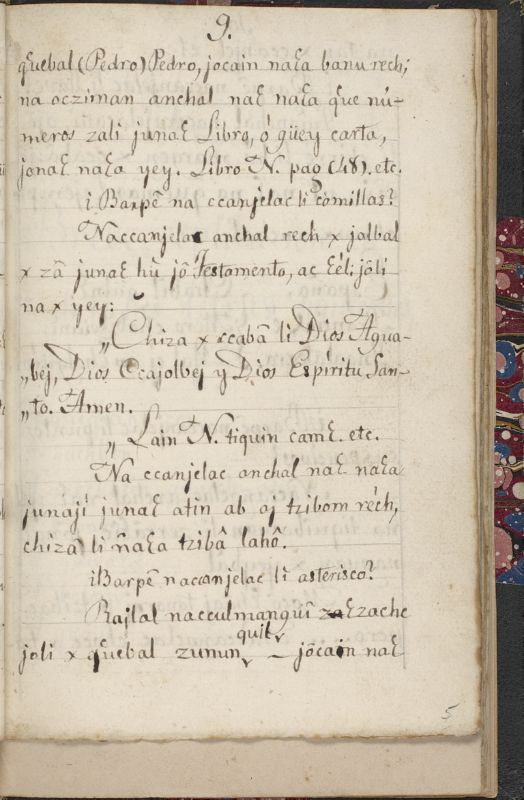 9.
q̃uebal (Pedro) Pedro, jocaìn naƚa banu rech;
na ocziman anchal naƚ naƚa q̃ue nú-
meros zali junaƚ Libro, ó güey carta,
jonaƚ naƚa yey. Libro N. pag (48). etc.
¿Barpê na ccanjelac li comillas?
Naccanjelac anchal rech x jalbal
x zâ junaƚ hù jô Testamento, ac ƚéli jôli
na x yey:
„Chiza x ccabâ li Dios Agua-
„bej, Dios Ccajolbej y Dios Espíritu San-
„to. Amen.
„Lain N. tiquin camƚ. etc.
Na ccanjelac anchal naƚ naƚa
junají junaƚ atin ab aj tzibom réch,
chiza li ñaƚa tzibâ lahô.
¿Barpê naccanjelac li asterisco?
Rajlal nacculmanquî zache
joli x q̃uebal zumun quib – jôcaìn naƚ
5